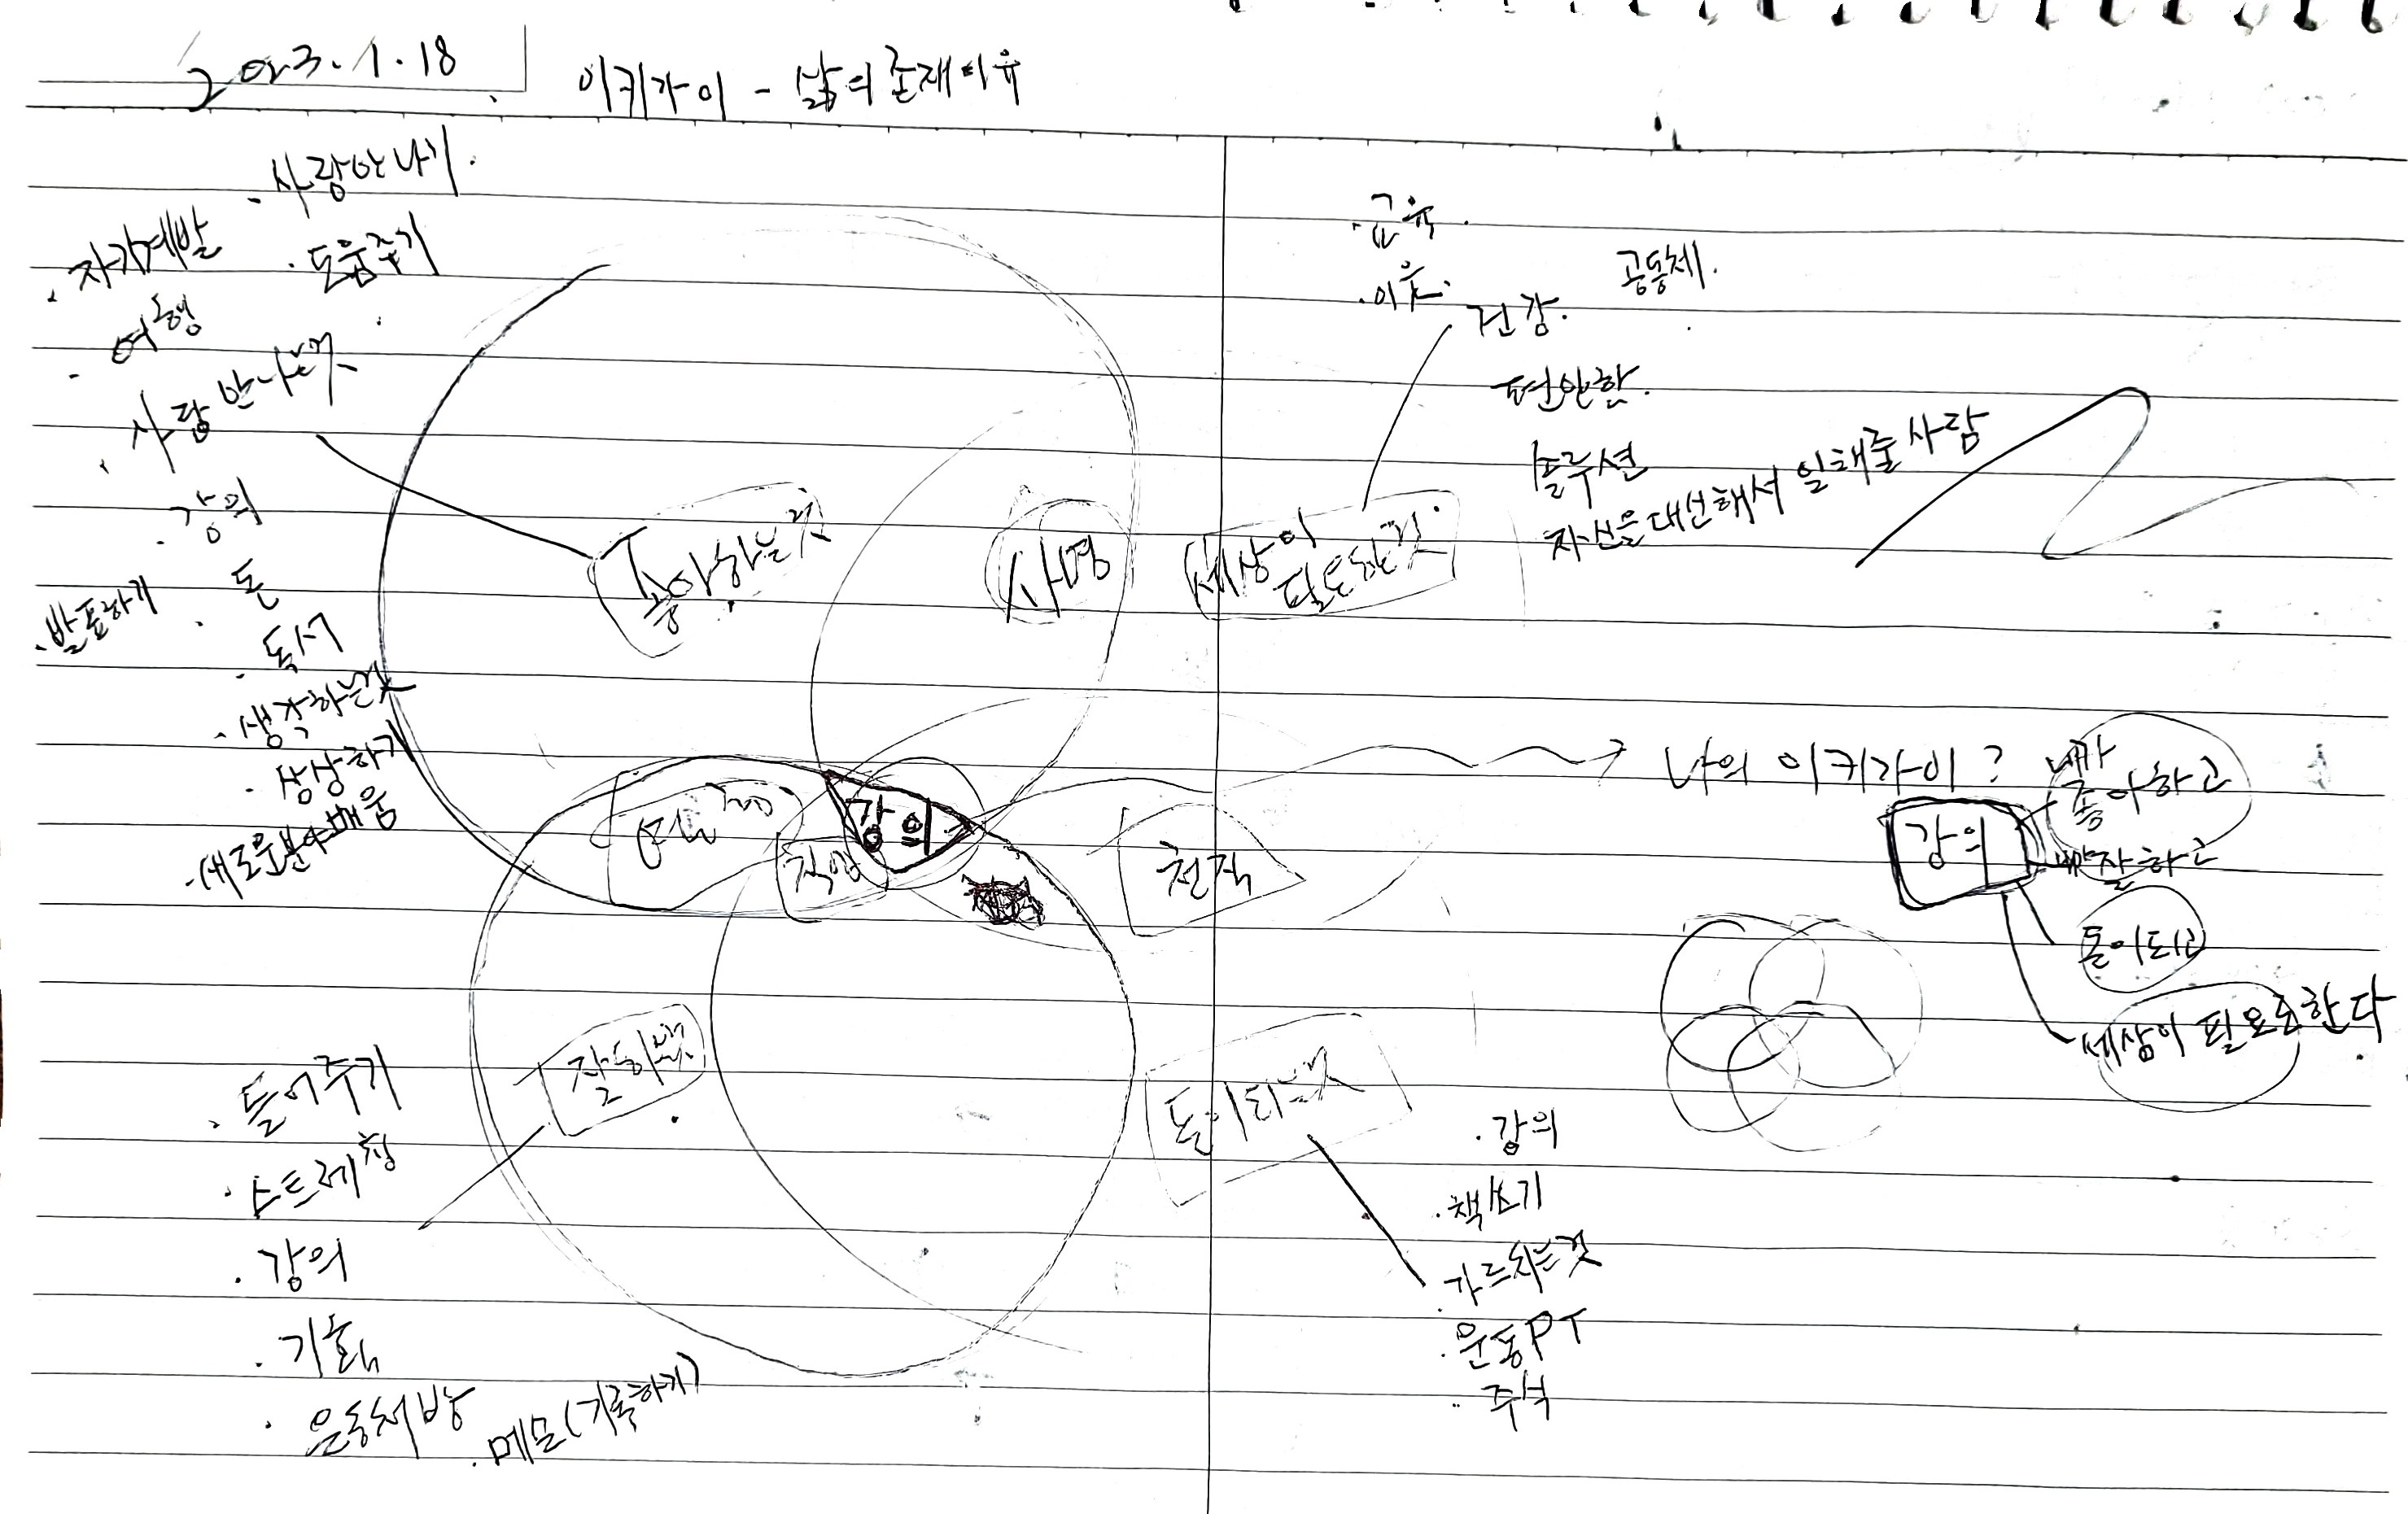 2023.1.18
이키가이 - 삶의 존재이유
· 사람만나기.
· 자기계발
· 도움주기
· 여행
· 사람 만나는것
· 강의
· 돈
· 발표하기
· 독서
· 생각하는것
· 상상하기
· 새로운분야배움
좋아하는것
사명
세상이
필요한것
· 교육.
건강.
공동체.
편안함.
솔루션
자신을대신해서 일해줄 사람
열정
직업
강의
천직
나의 이키가이?
강의
내가
좋아하고
내가잘하고
돈이되고
세상이 필요로한다
잘하는것
· 들어주기
· 스트레칭
· 강의
· 기획
· 운동처방
· 메모(기록하기)
돈이되는것
· 강의
· 책쓰기
· 가르치는것
· 운동PT
· 주식